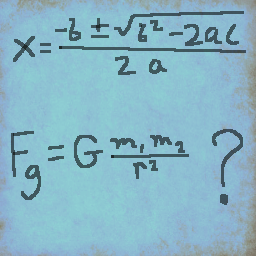 x = (-b ± √(b² - 2ac)) / (2a)
F_g = G (m₁ m₂) / r² ?